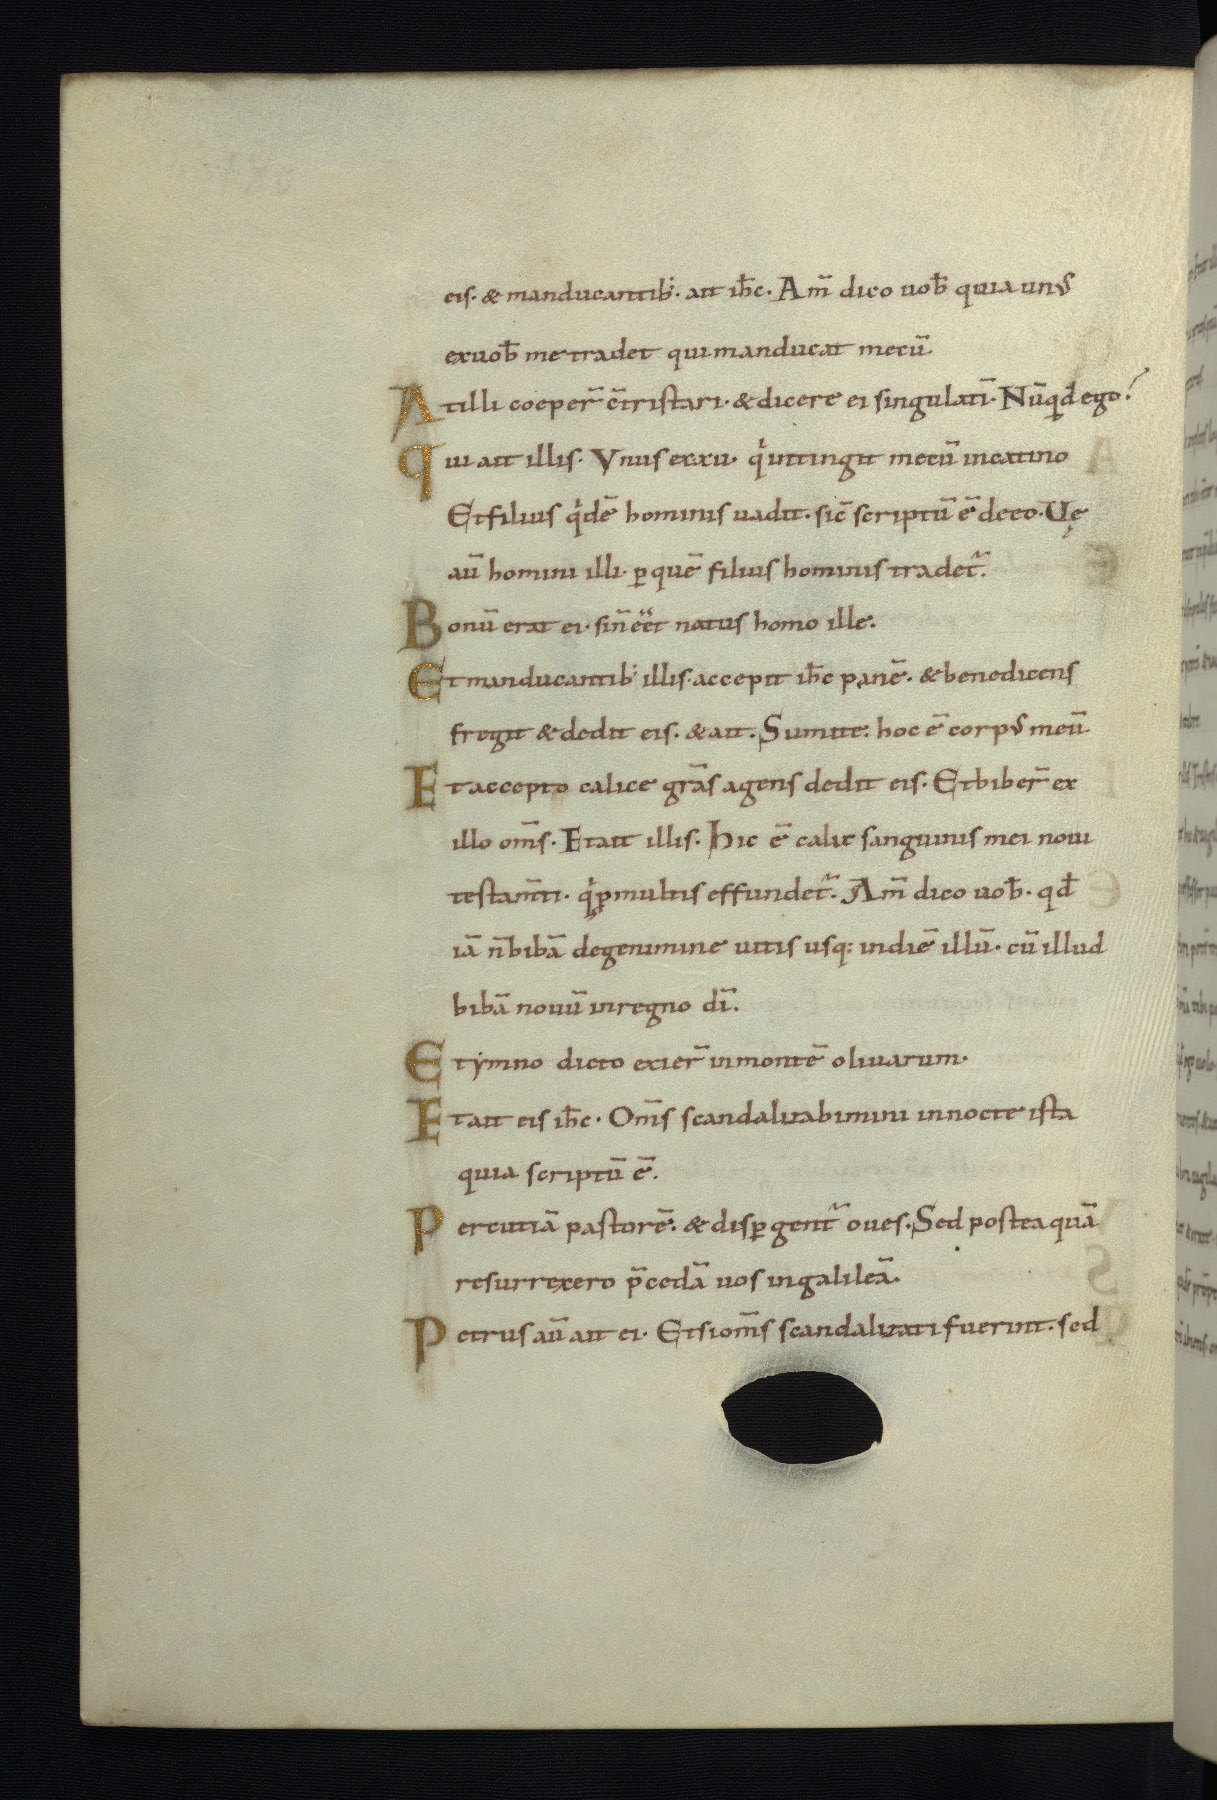 eis· & manducantib;· ait ih̄c· Am̄ dico uob̄ quia unus
exuob̄ me tradet qui manducat mecū·
Atilli coeper̄ c̄tristari· & dicere ei singulatī· Nūqd̄ ego?
Qui ait illis· Vnus exxii· qͥ intingit mecū incatino
Et filius qͥdē hominis uadit· sic̄ scriptū ē deeo· Uę
aū homini illi· ꝑquē filius hominis tradet᷑·
Bonū erat ei· sin̄ eēt natus homo ille·
Et manducantib; illis· accepit ih̄c panē· & benedicens
fregit & dedit eis· & ait· Sumite· hoc ē corpus meū
Et accepto calice gr̄as agens dedit eis· Et biber̄ ex
illo om̄s· Et ait illis· Hic ē calix sanguinis mei noui
testam̄ti· qͥ ꝓmultis effundet᷑· Am̄ dico uob̄· qd̄
iā n̄ bibā degenimine uitis usq; indiē illū· cū illud
bibā nouū inregno dī·
Et ymno dicto exier̄ inmontē oliuarum·
Et ait eis ih̄c· Om̄s scandalizabimini innocte ista
quia scriptū ē·
Percutiā pastorē· & disꝑgent᷑ oues· Sed posteaquā
resurrexero p̄cedā uos ingalileā·
Petrus aū ait ei· Etsi om̄s scandalizati fuerint· sed